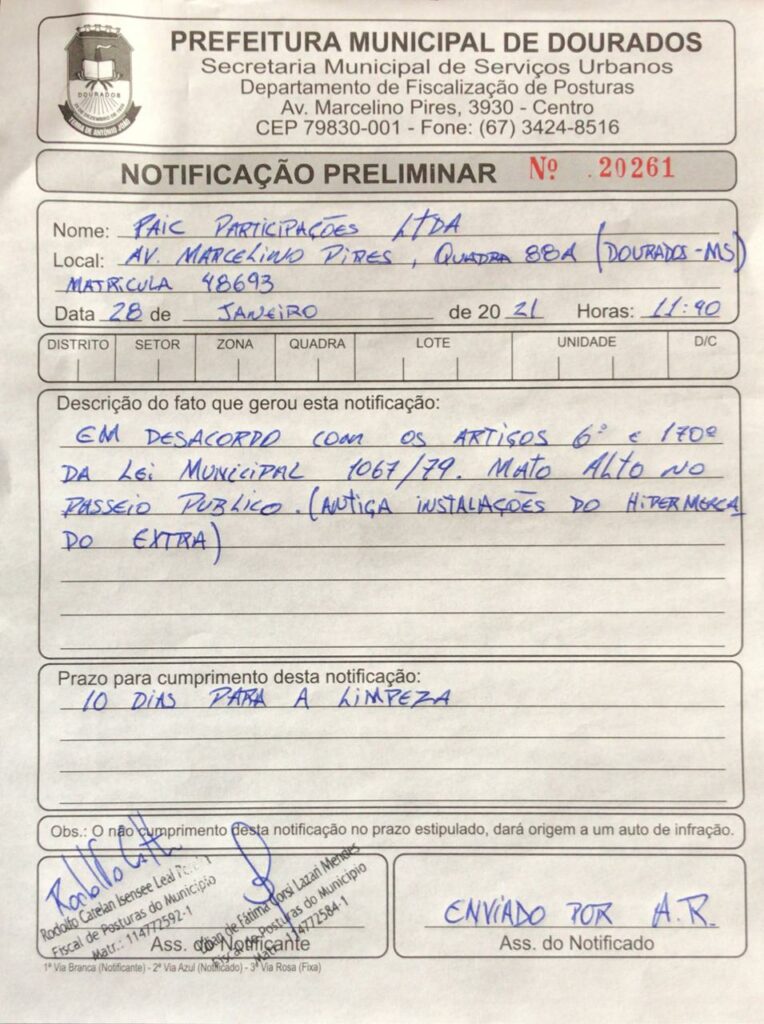 DOURADOS
TERRA DE ANTÔNIO JOÃO
PREFEITURA MUNICIPAL DE DOURADOS
Secretaria Municipal de Serviços Urbanos
Departamento de Fiscalização de Posturas
Av. Marcelino Pires, 3930 - Centro
CEP 79830-001 - Fone: (67) 3424-8516
NOTIFICAÇÃO PRELIMINAR Nº .20261
Nome: PAIC PARTICIPAÇÕES LTDA
Local: AV. MARCELINO PIRES, QUADRA 88A (DOURADOS-MS)
MATRICULA 48693
Data 28 de JANEIRO de 20 21 Horas: 11:40
DISTRITO SETOR ZONA QUADRA LOTE UNIDADE D/C
Descrição do fato que gerou esta notificação:
EM DESACORDO COM OS ARTIGOS 6º E 170º
DA LEI MUNICIPAL 1067/79. MATO ALTO NO
PASSEIO PUBLICO. (ANTIGA INSTALAÇÕES DO HIPERMERCA
DO EXTRA)
Prazo para cumprimento desta notificação:
10 DIAS PARA A LIMPEZA
Obs.: O não cumprimento desta notificação no prazo estipulado, dará origem a um auto de infração.
Rodolfo Catelan Isensee Leal
Fiscal de Posturas do Município
Matr.: 114772592-1
de Fátima Corsi Lazari Mendes
Fiscal de Posturas do Município
Matr. 114772584-1
Ass. do Notificante
ENVIADO POR A.R.
Ass. do Notificado
1ª Via Branca (Notificante) - 2ª Via Azul (Notificado) - 3ª Via Rosa (Fixa)